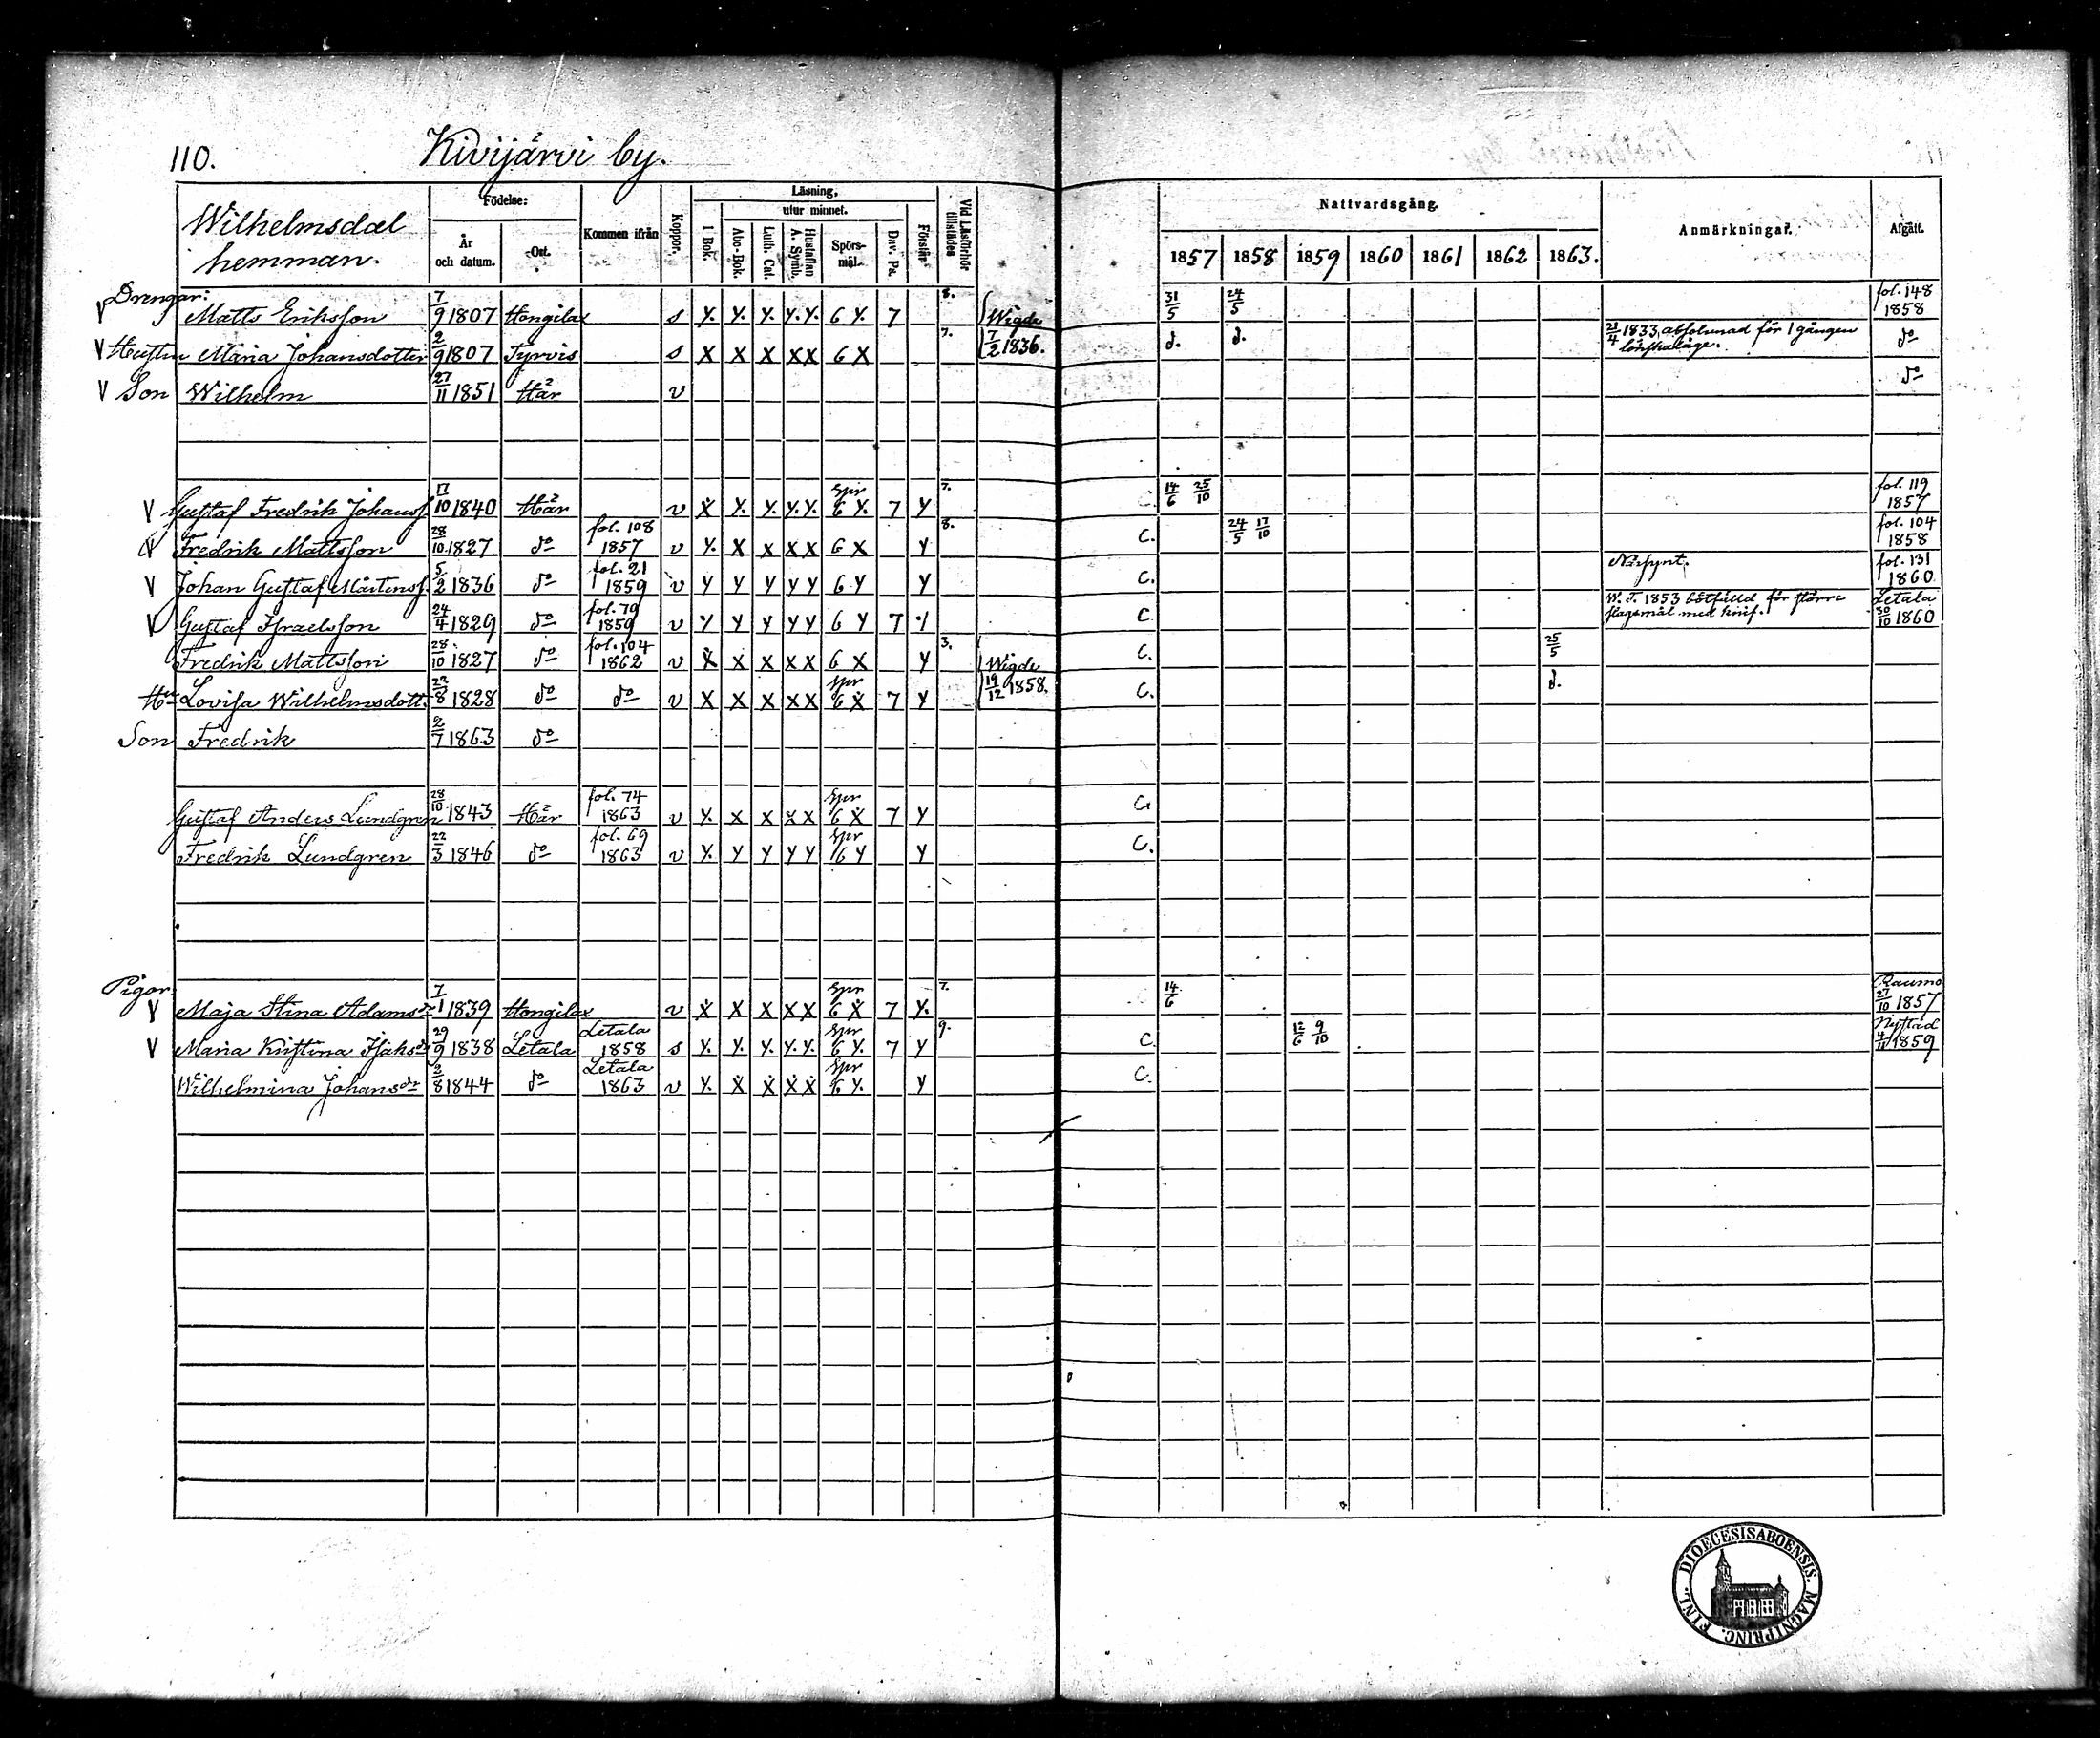 110. Kivijärvi by.
Wilhelmsdal hemman.
Födelse: År och datum. Ort. Kommen ifrån Koppor. Läsning, I Bok. utur minnet. Abc-Bok. Luth. Cat. Hustaflan A. Symb. Spörsmål. Dav. Ps. Förstår. Vid Läsförhör tillstädes
Nattvardsgång. 1857 1858 1859 1860 1861 1862 1863. Anmärkningar. Afgått.
Drengar:
V Matts Eriksson 7/9 1807 Hongilax s Y. Y. Y. Y. Y. 6 Y. 7 8. Wigde 31/5 24/5 fol. 148 1858
V Hustru Maria Johansdotter 2/9 1807 Tyrvis s X X X X X 6 X 7. 7/2 1836. d. d. 21/4 1833, absolverad för 1 gången lönskaläge. do
V Son Wilhelm 27/11 1851 Här v do
V Gustaf Fredrik Johanss. 17/10 1840 Här v X Y. Y. Y. Y. Spr 6 Y. 7 Y 7. C. 14/6 25/10 fol. 119 1857
V Fredrik Mattsson 28/10 1827 do fol. 108 1857 v Y. X X X X 6 X Y 8. C. 24/5 17/10 fol. 104 1858
V Johan Gustaf Mårtenss. 5/2 1836 do fol. 21 1859 v Y Y Y Y Y 6 Y Y C. Närsynt. fol. 131 1860
V Gustaf Israelsson 24/4 1829 do fol. 79 1859 v Y Y Y Y Y 6 Y 7 Y C W. T. 1853 bötfälld för större slagsmål med knif. Letala 30/10 1860
Fredrik Mattsson 28/10 1827 do fol. 104 1862 v X X X X X 6 X Y 3. Wigde C. 25/5
Hu Lovisa Wilhelmsdott. 22/8 1828 do do v X X X X X Spr 6 X 7 Y 19/12 1858. C. d.
Son Fredrik 2/7 1863 do
Gustaf Anders Lundgren 28/10 1843 Här fol. 74 1863 v Y. X X X X Spr 6 X 7 Y C.
Fredrik Lundgren 22/3 1846 do fol. 69 1863 v Y. Y Y Y Y Spr 6 Y Y C.
Pigor:
V Maja Stina Adamsdr 7/1 1839 Hongilax v X X X X X Spr 6 X 7 Y. 7. 14/6 Raumo 27/10 1857
V Maria Kristina Isaksdr 29/9 1838 Letala Letala 1858 s Y. Y. Y. Y. Y. Spr 6 Y. 7 Y 9. C. 12/6 9/10 Nystad 4/11 1859
Wilhelmina Johansdr 2/8 1844 do Letala 1863 v Y. X X X X Spr 6 Y. Y C.
DIOECESIS ABOENSIS. MAGNI PRINC. FINL.